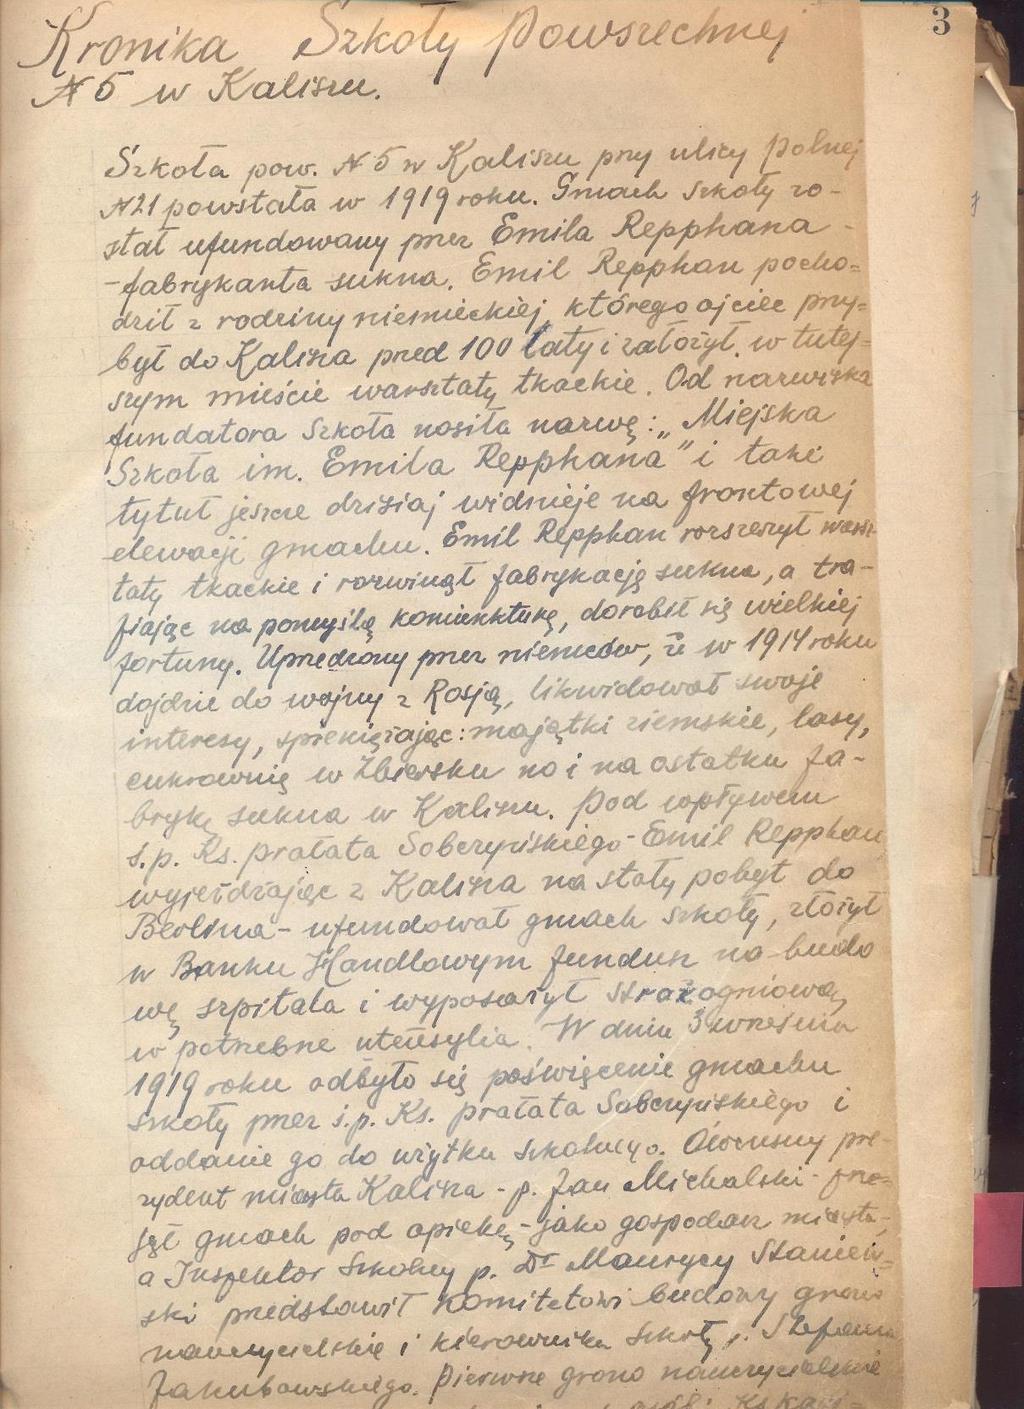 3
Kronika Szkoły Powszechnej
N 5 w Kaliszu.
Szkoła pow. N 5 w Kaliszu przy ulicy Polnej
N21 powstała w 1919 roku. Gmach szkoły zo-
stał ufundowany przez Emila Repphana -
-fabrykanta sukna. Emil Repphan pocho=
dził z rodziny niemieckiej, którego ojciec przy=
był do Kalisza przed 100 laty i założył w tutej=
szym mieście warsztaty tkackie. Od nazwiska
fundatora Szkoła nosiła nazwę: „Miejska
Szkoła im. Emila Repphana" i taki
tytuł jeszcze dzisiaj widnieje na frontowej
elewacji gmachu. Emil Repphan rozszerzył warsz-
taty tkackie i rozwinął fabrykację sukna, a tra-
fiając na pomyślą koniunkturę, dorobił się wielkiej
fortuny. Uprzedzony przez niemców, iż w 1914 roku
dojdzie do wojny z Rosją, likwidował swoje
interesy, spieniężając: majątki ziemskie, lasy,
cukrownię w Zbiersku no i na ostatku fa-
brykę sukna w Kaliszu. Pod wpływem
ś.p. Ks. prałata Sobczyńskiego - Emil Repphan
wyjeżdżając z Kalisza na stały pobyt do
Berlina - ufundował gmach szkoły, złożył
w Banku Handlowym fundusz na budo
wę szpitala i wyposażył straż ogniową
w potrzebne utensylia. W dniu 3 września
1919 roku odbyło się poświęcenie gmachu
szkoły przez ś.p. Ks. prałata Sobczyńskiego i
oddanie go do użytku szkolnego. Ówczesny pre-
zydent miasta Kalisza - p. Jan Michalski - prze=
jął gmach pod opiekę - jako gospodarz miasta,
a Inspektor Szkolny p. Dr Maurycy Staniew=
ski przedstawił Komitetowi budowy grono
nauczycielskie i kierownika szkoły p. Stefana
Jakubowskiego. Pierwsze grono nauczycielskie